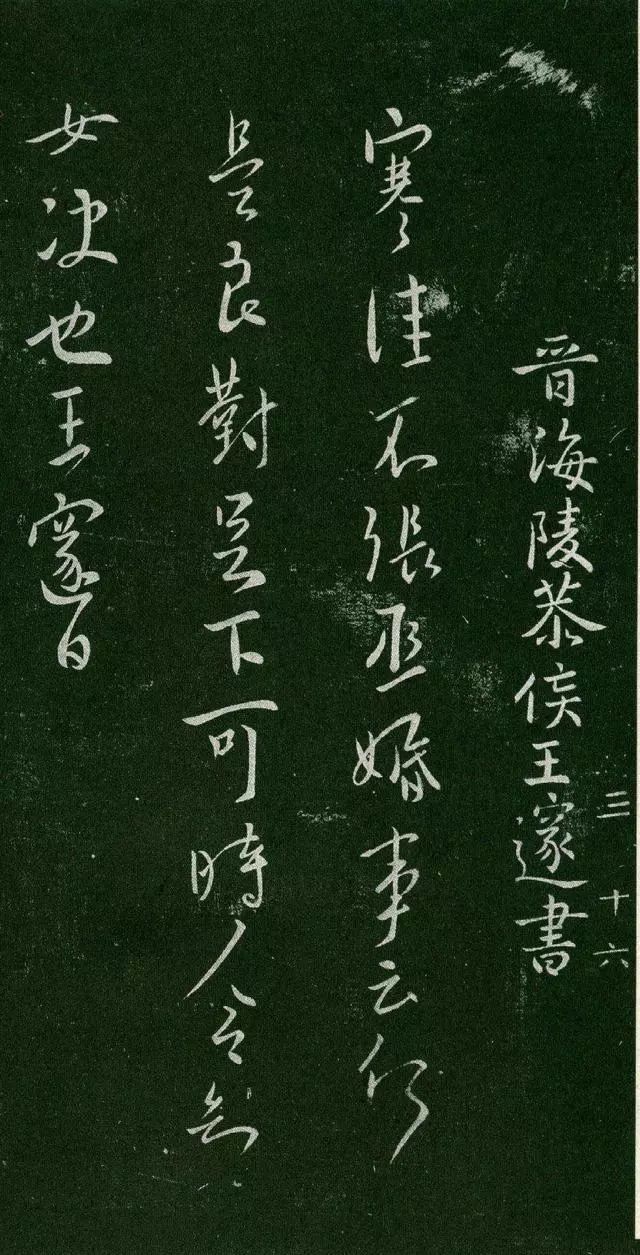 晋海陵恭侯王邃書
三 十六
寒佳不張丞婚事云何
是良對足下可時人令知
女决也王邃白